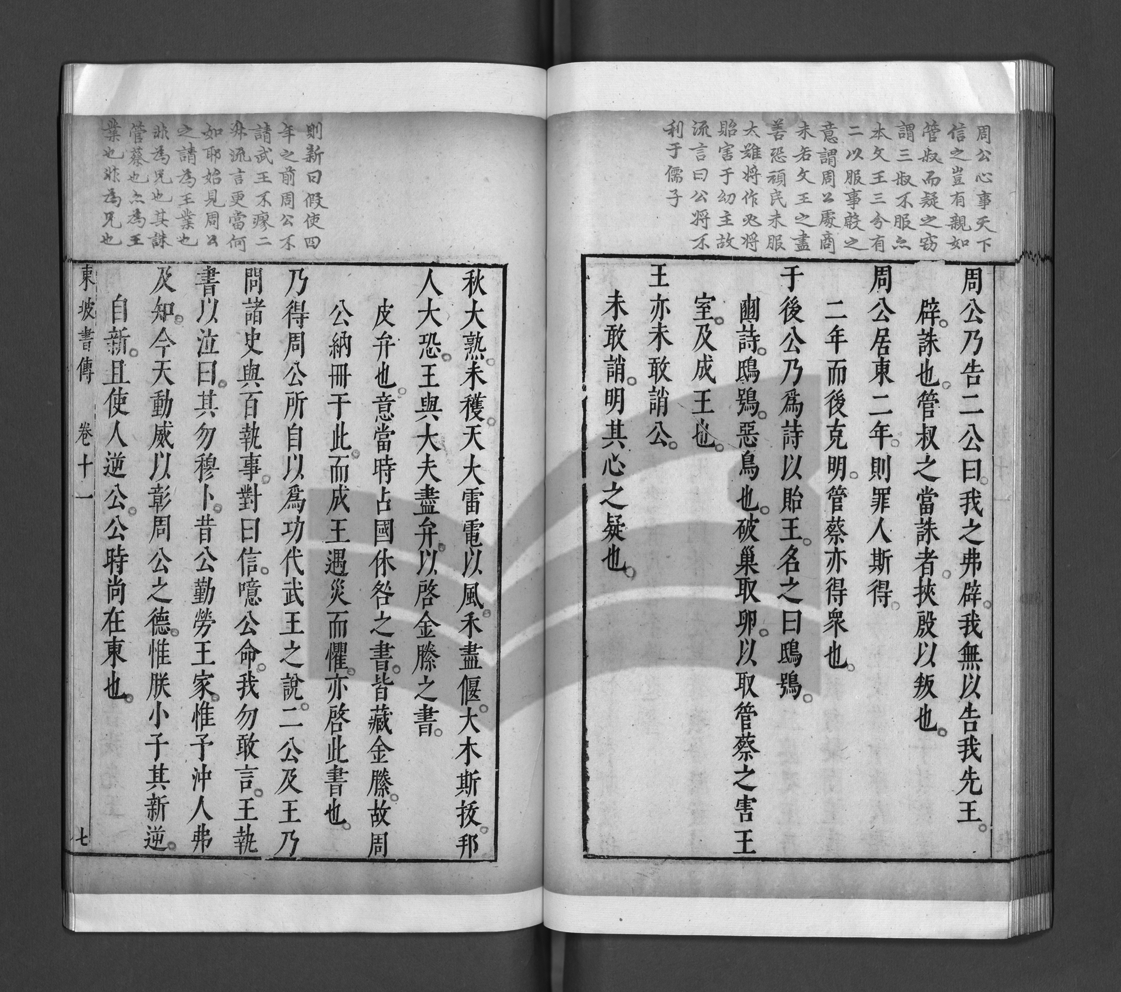 周公心事天下
信之豈有親如
管叔而疑之窃
謂三叔不服亦
本文王三分有
二以服事殷之
意謂周公處商
未若文王之盡
善恐頑民未服
太難將作必將
貽害于幼主故
流言曰公將不
利于儒子
周公乃告二公曰我之弗辟我無以告我先王
辟誅也管叔之當誅者挾殷以叛也
周公居東二年則罪人斯得
二年而後克明管蔡亦得衆也
于後公乃爲詩以貽王名之曰鴟鴞
豳詩鴟鴞惡鳥也破巢取卵以取管蔡之害王
室及成王也
王亦未敢誚公
未敢誚明其心之疑也
則新曰假使四
年之前周公不
請武王不瘳二
叔流言更當何
如耶始見周公
之請為王業也
非為兄也其誅
管蔡也亦為王
業也非為兄也
秋大熟未穫天大雷電以風禾盡偃大木斯拔邦
人大恐王與大夫盡弁以啓金縢之書
皮弁也意當時占國休咎之書皆藏金縢故周
公納冊于此而成王遇災而懼亦啓此書也
乃得周公所自以爲功代武王之說二公及王乃
問諸史與百執事對曰信噫公命我勿敢言王執
書以泣曰其勿穆卜昔公勤勞王家惟予沖人弗
及知今天動威以彰周公之德惟朕小子其新逆
自新且使人逆公公時尚在東也
東坡書傳 卷十一 七